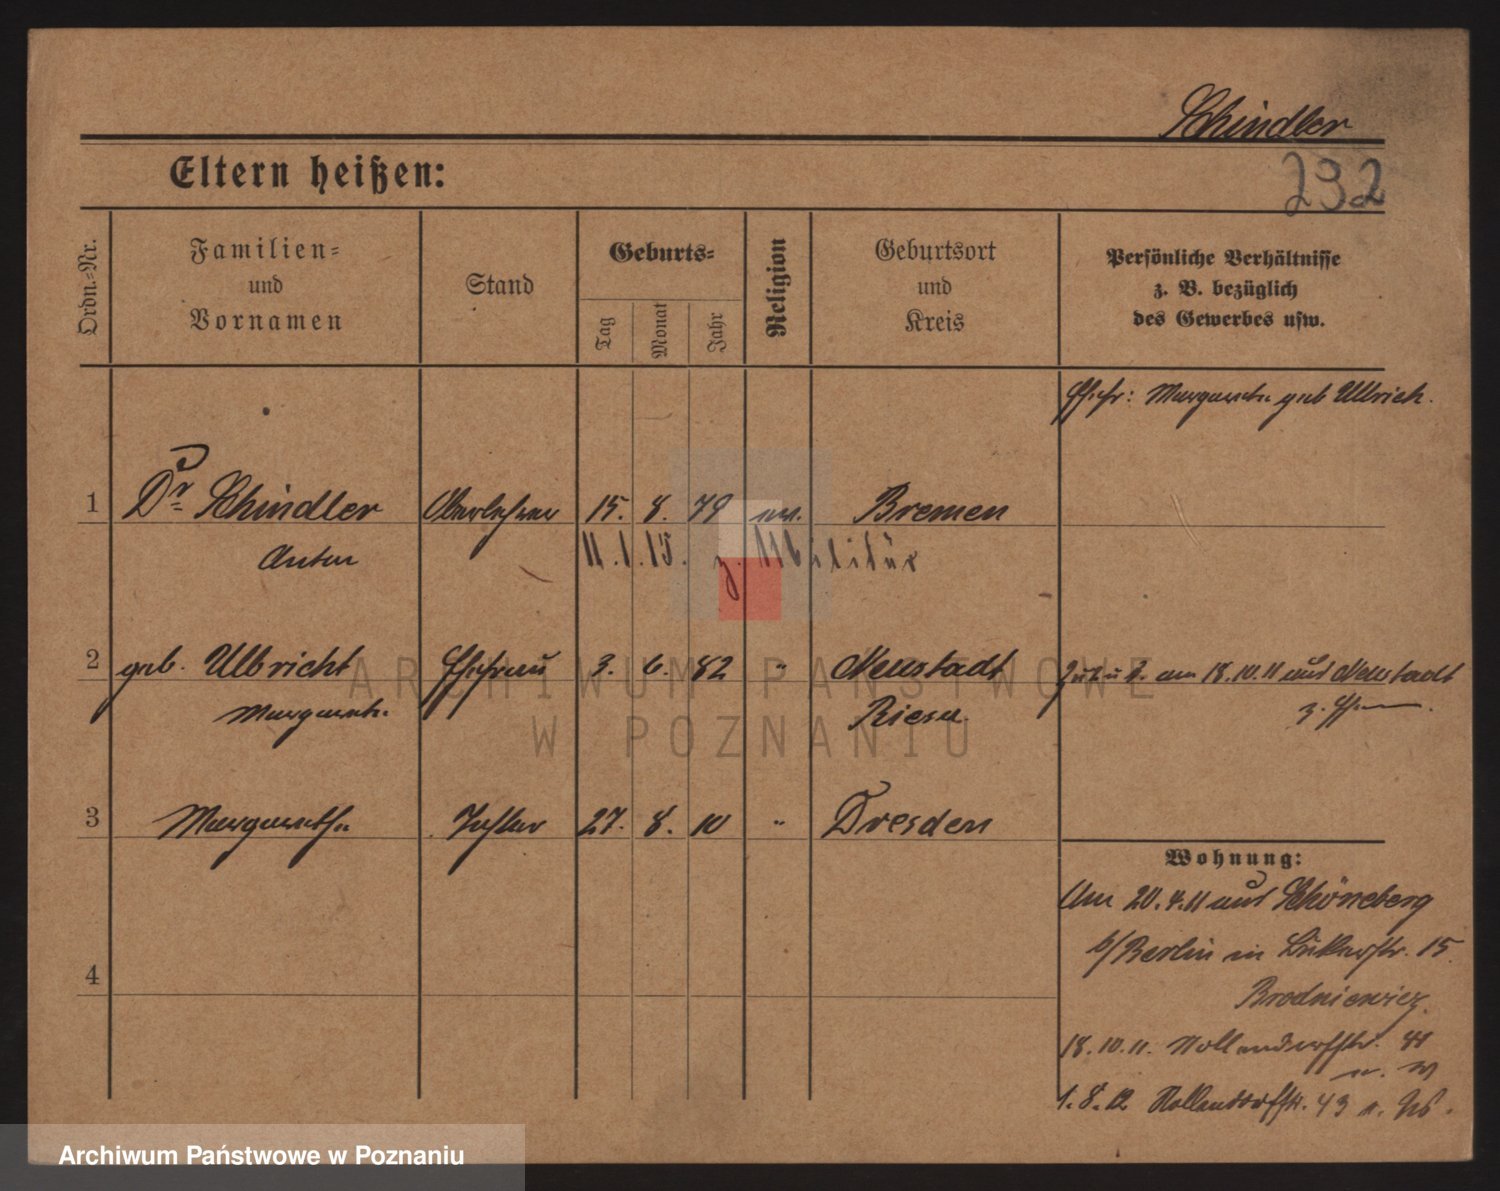 Schindler
Eltern heißen:
292
Ordn.-Nr.
Familien-
und
Vornamen
Stand
Geburts-
Tag
Monat
Jahr
Religion
Geburtsort
und
Kreis
Persönliche Verhältnisse
z. B. bezüglich
des Gewerbes usw.
Ehefr: Margarete geb Ulbrich.
1 Dr Schindler Oberlehrer 15. 8. 79 ev. Bremen
Anton 11.1.15. z. Militär
2 geb. Ulbricht Ehefrau 3. 6. 82 " Neustadt zu am 18.10.11 aus Neustadt
Margarete Riesa z. Ehem.
3 Margarethe Tochter 27. 8. 10 " Dresden
Wohnung:
Am 20.4.11 aus Schöneberg
b/Berlin in 15.
4
Brodniewicz
18.10.11. Nollendorfstr. 41
1.8.12 Nollendorfstr. 43
ARCHIWUM PAŃSTWOWE
W POZNANIU
Archiwum Państwowe w Poznaniu